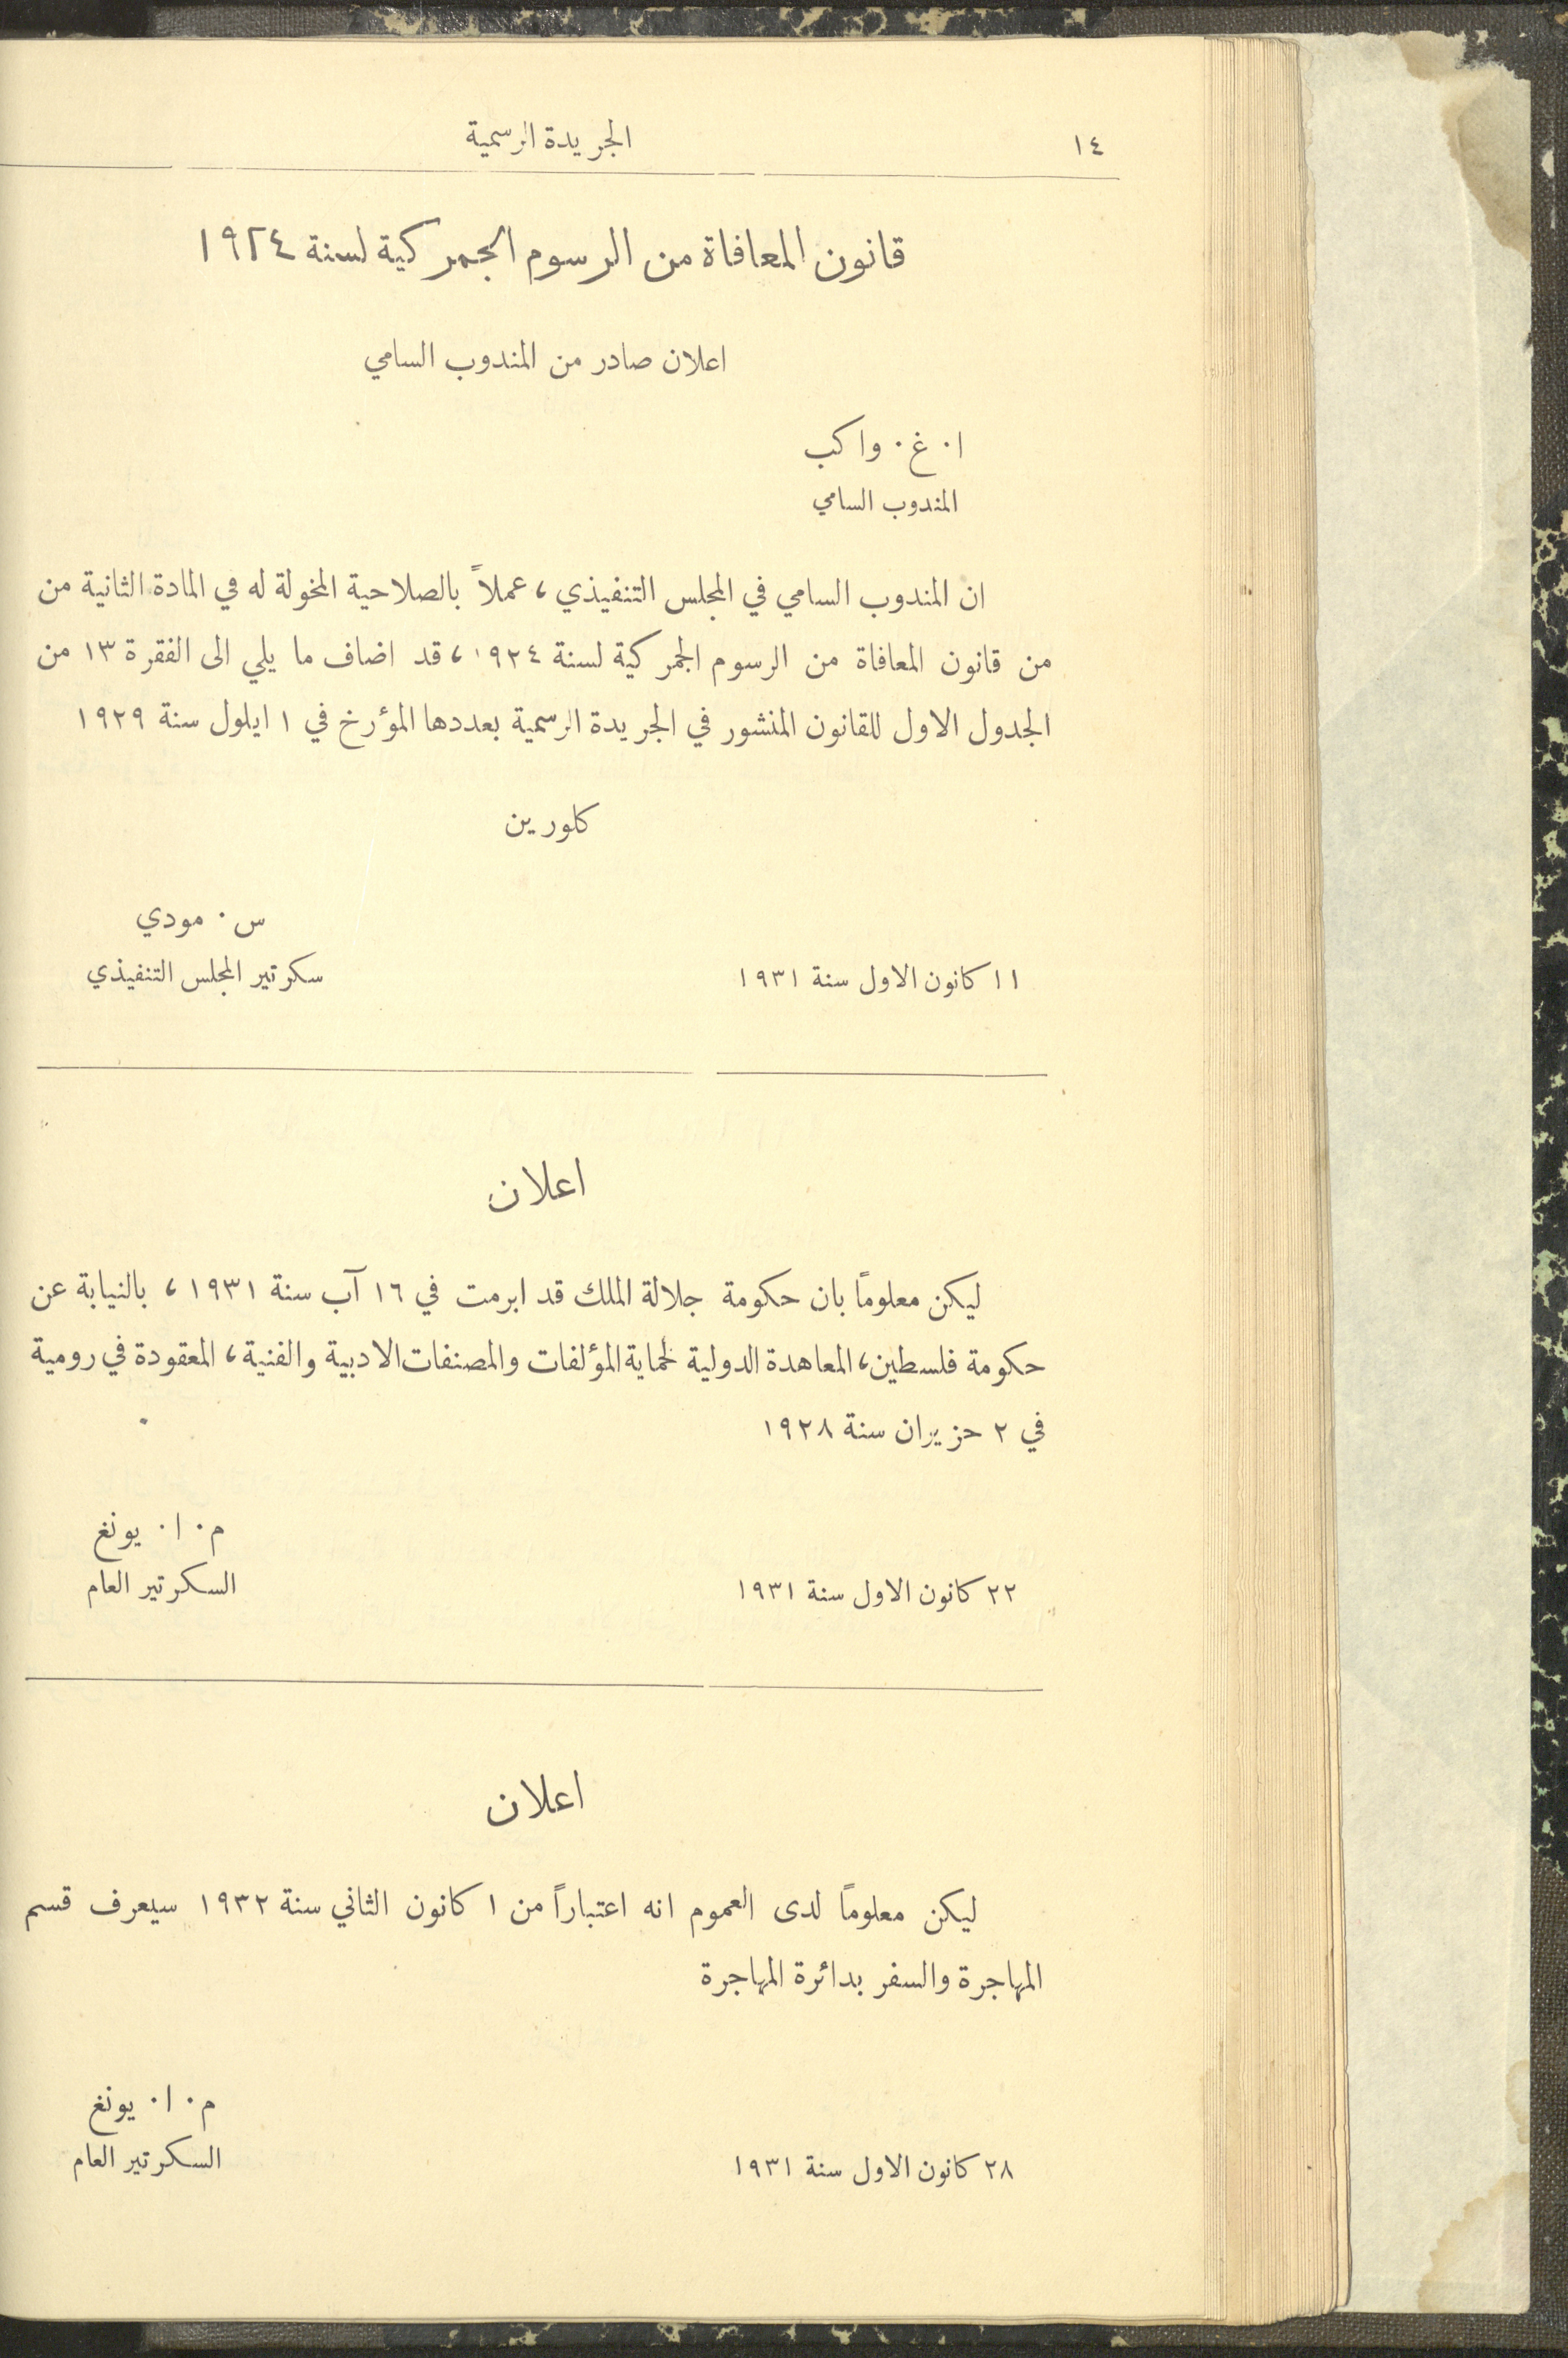 ١٤
الجريدة الرسمية
قانون المعافاة من الرسوم الجمركية لسنة ١٩٢٤
اعلان صادر من المندوب السامي
ا٠ غ٠ واكب
المندوب السامي
ان المندوب السامي في المجلس التنفيذي، عملاً بالصلاحية المخولة له في المادة الثانية من
من قانون المعافاة من الرسوم الجمركية لسنة ١٩٢٤، قد اضاف ما يلي الى الفقرة ١٣ من
الجدول الاول للقانون المنشور في الجريدة الرسمية بعددها المؤرخ في ١ ايلول سنة ١٩٢٩
كلورين
س٠ مودي
١١ كانون الاول سنة ١٩٣١ سكرتير المجلس التنفيذي
اعلان
ليكن معلوماً بان حكومة جلالة الملك قد ابرمت في ١٦ آب سنة ١٩٣١، بالنيابة عن
حكومة فلسطين، المعاهدة الدولية لحماية المؤلفات والمصنفات الادبية والفنية، المعقودة في رومية
في ٢ حزيران سنة ١٩٢٨
م٠ ا٠ يونغ
٢٢ كانون الاول سنة ١٩٣١ السكرتير العام
اعلان
ليكن معلوماً لدى العموم انه اعتباراً من ١ كانون الثاني سنة ١٩٣٢ سيعرف قسم
المهاجرة والسفر بدائرة المهاجرة
م٠ ا٠ يونغ
٢٨ كانون الاول سنة ١٩٣١ السكرتير العام